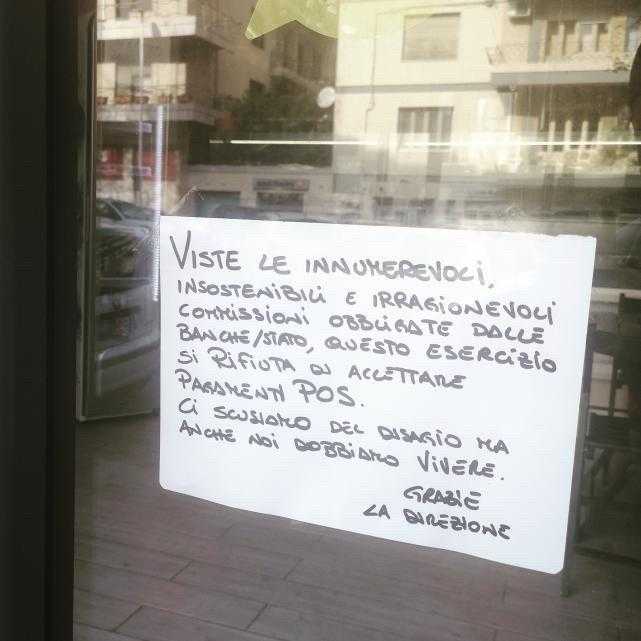 VISTE LE INNUMEREVOLI,
INSOSTENIBILI E IRRAGIONEVOLI
COMMISSIONI OBBLIGATE DALLE
BANCHE/STATO, QUESTO ESERCIZIO
SI RIFIUTA DI ACCETTARE
PAGAMENTI POS.
CI SCUSIAMO DEL DISAGIO MA
ANCHE NOI DOBBIAMO VIVERE.
GRAZIE
LA DIREZIONE